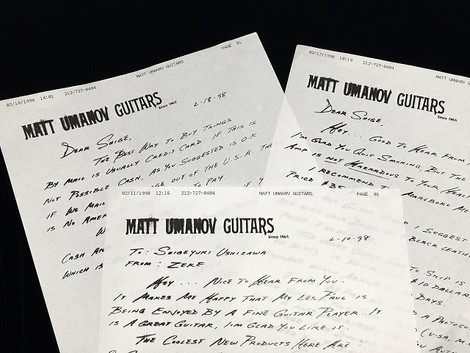 02/18/1998 14:01 212-727-8404 MATT UMANOV GUITARS PAGE 01
MATT UMANOV GUITARS
Since 1965
2-18-98
DEAR SHIGE,
THE BEST WAY TO BUY THINGS
BY MAIL IS USUALLY CREDIT CARD. IF THIS IS
NOT POSSIBLE CASH, AS YOU SUGGESTED IS O.K.
OUT OF THE U.S.A. TH
IF WE MAIL
TO PAY
IS NO AMER
CASH AR
WHICH IS
02/17/1998 18:19 212-727-8404 MATT UMANOV
MATT UMANOV GUITARS
Since 1965
DEAR SHIGE
HEY... GOOD TO HEAR FROM
I'M GLAD YOU QUIT SMOKING. BUT THE
AMP IS NOT HAZARDOUS TO YOUR HEAL
I RECOMMEND
MARLBORO
PRICE $35
BLACK LEATH
TO SHIP IS
DOLLA
DAYS.
(VISA, M
02/11/1998 12:16 212-727-8404 MATT UMANOV GUITARS PAGE 01
MATT UMANOV GUITARS
Since 1965
2-10-98
TO: SHIGEYUKI USHIZAWA
FROM: ZEKE
HEY... NICE TO HEAR FROM YOU.
IT MAKES ME HAPPY THAT MY LES PAUL IS
BEING ENJOYED BY A FINE GUITAR PLAYER. IT
IS A GREAT GUITAR. I'M GLAD YOU LIKE IT.
THE COOLEST NEW PRODUCTS HERE ARE